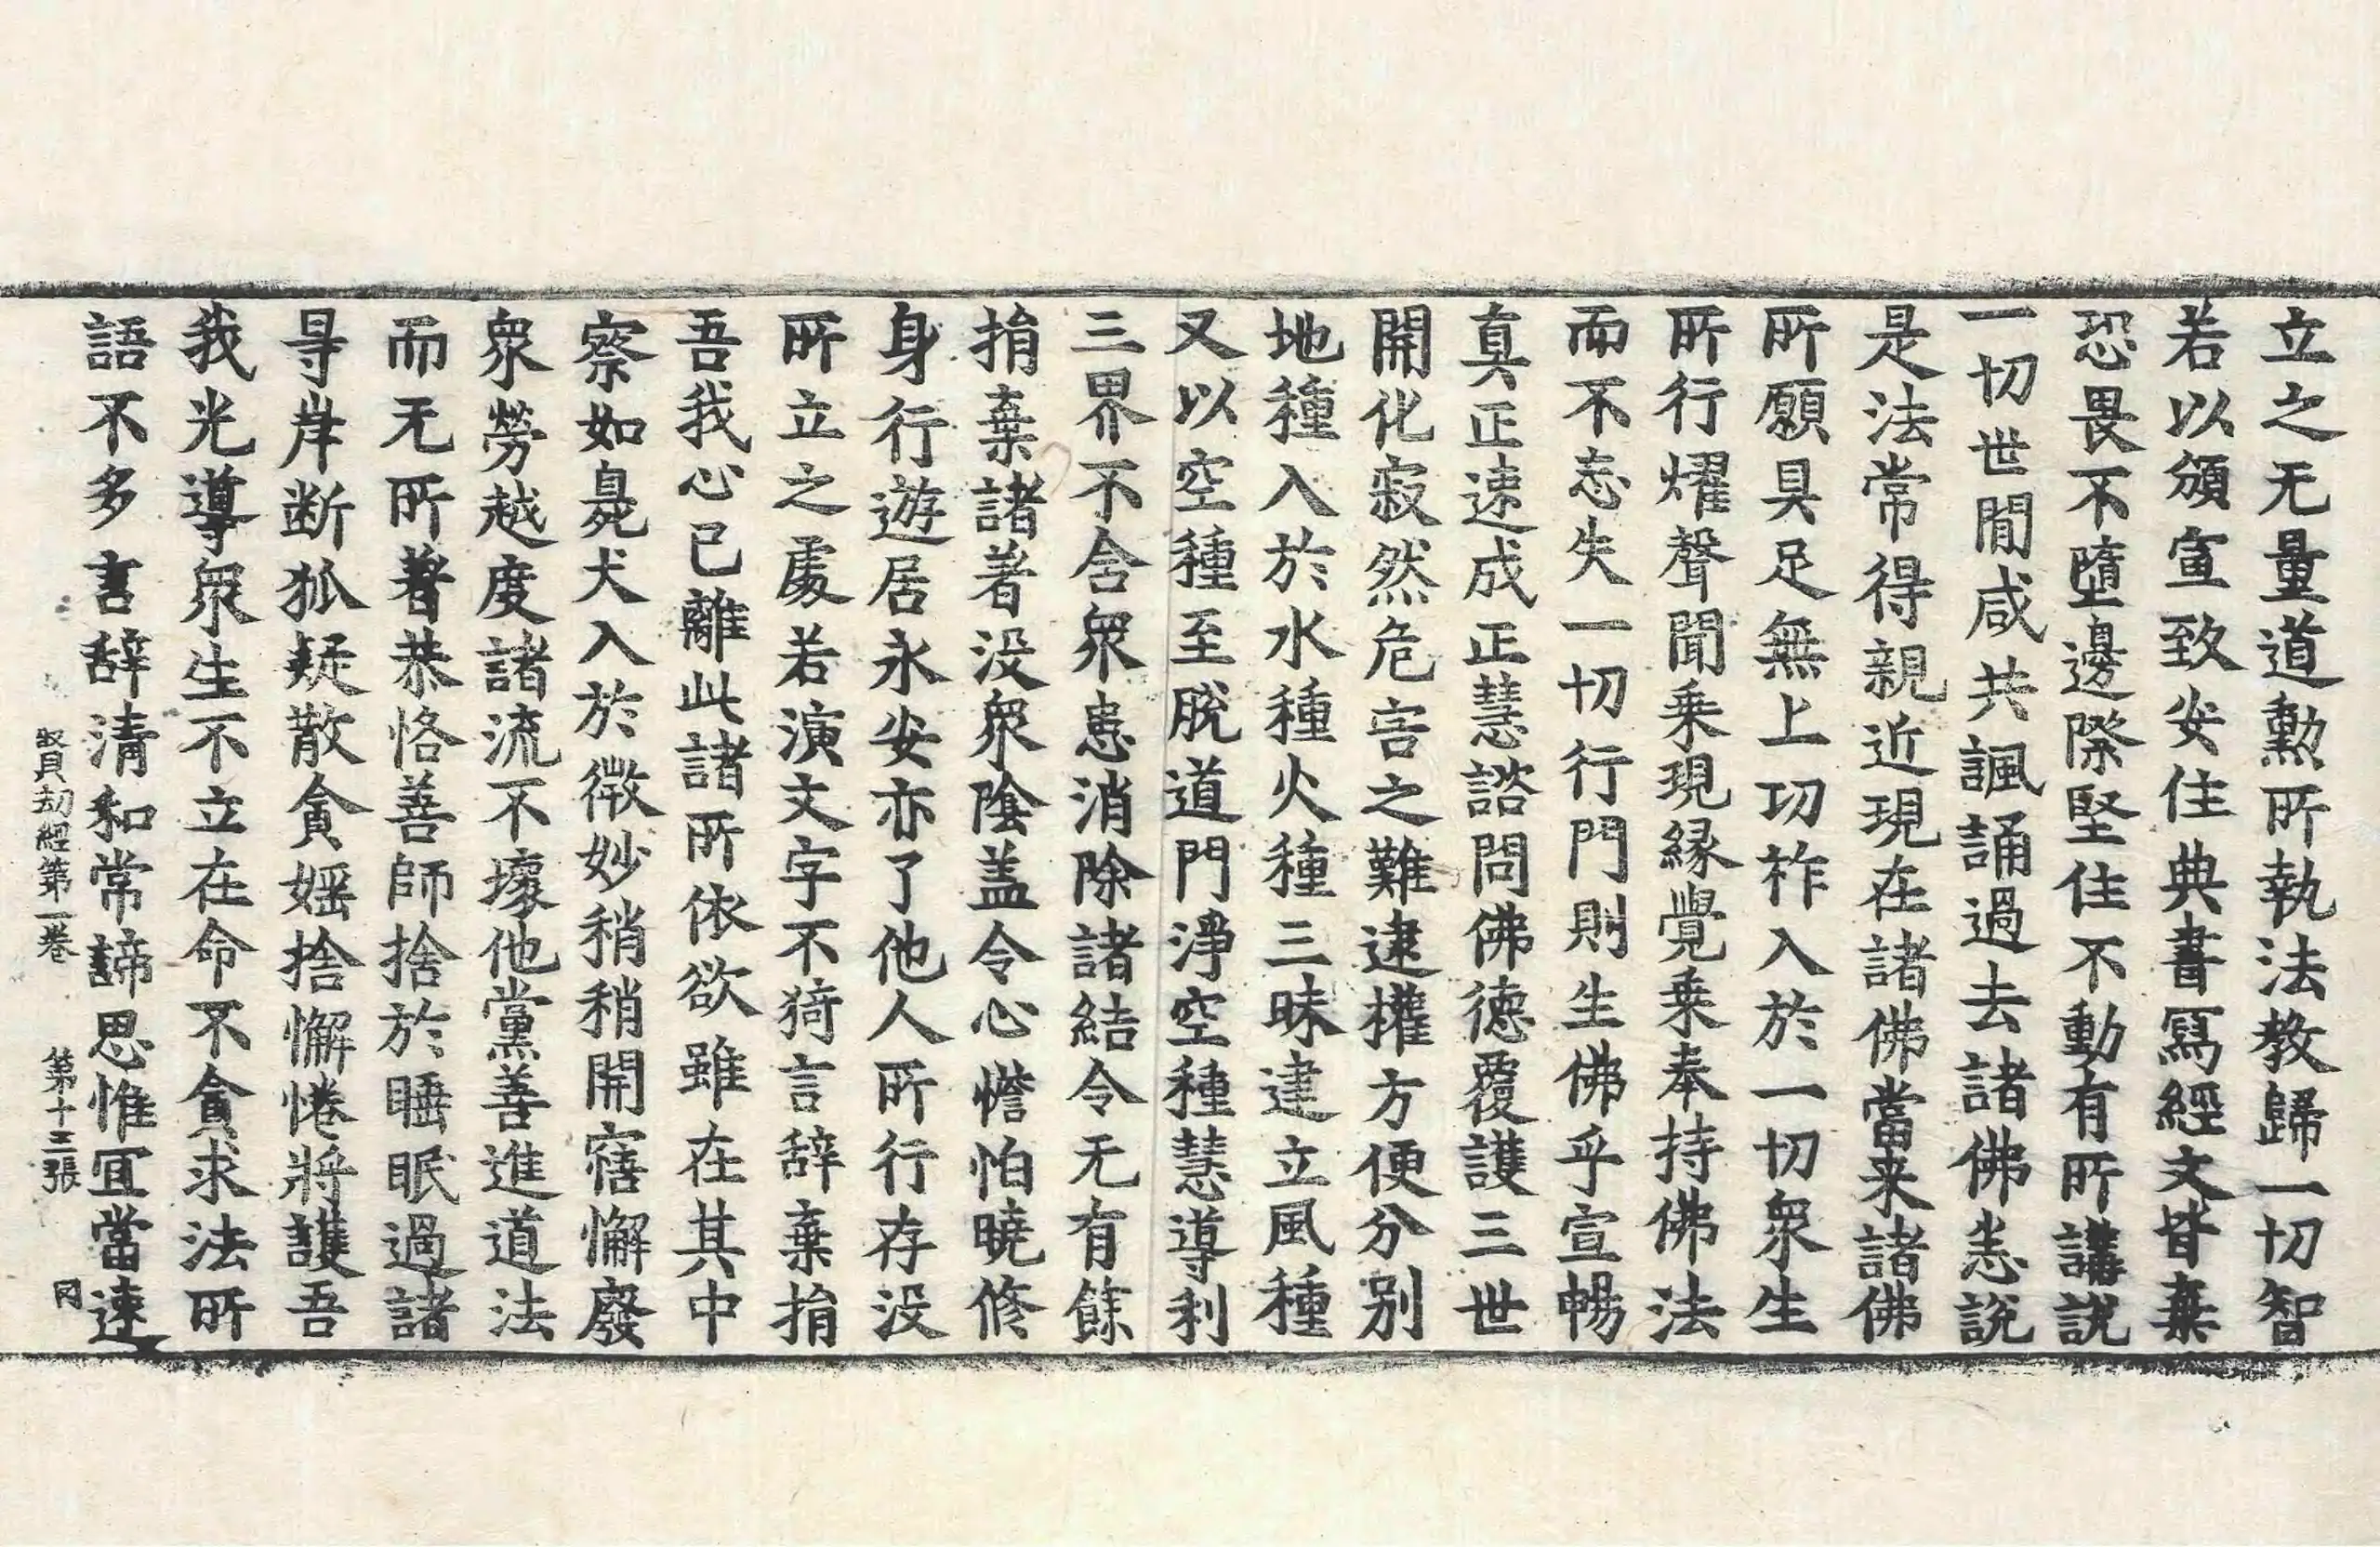 立之无量道勲所執法教歸一切智
若以頒宣致安住典書寫經文皆棄
恐畏不墮邊際堅住不動有所講說
一切世間咸共諷誦過去諸佛恙說
是法常得親近現在諸佛當来諸佛
所願具足無上功祚入於一切衆生
所行燿聲聞乗現縁覺乗奉持佛法
而不忘失一切行門則生佛乎宣暢
真正速成正慧諮問佛德覆護三世
開化寂然危害之難逮權方便分別
地種入於水種火種三昧建立風種
又以空種至脫道門淨空種慧導利
三界不舍衆患消除諸結令无有餘
捐棄諸著没衆陰盖令心憺怕曉修
身行遊居永安亦了他人所行存没
所立之處若演文字不猗言辞棄捐
吾我心已離此諸所依欲雖在其中
察如臭死犬入於微妙稍稍開寤懈廢
衆勞越度諸流不壞他黨善進道法
而无所著恭恪善師捨於睡眠過諸
㝵岸断狐疑散貪婬捨懈惓將護吾
我光導衆生不立在命不貪求法所
語不多言辞清和常諦思惟冝當速
賢劫經第一卷 第十三張 冈